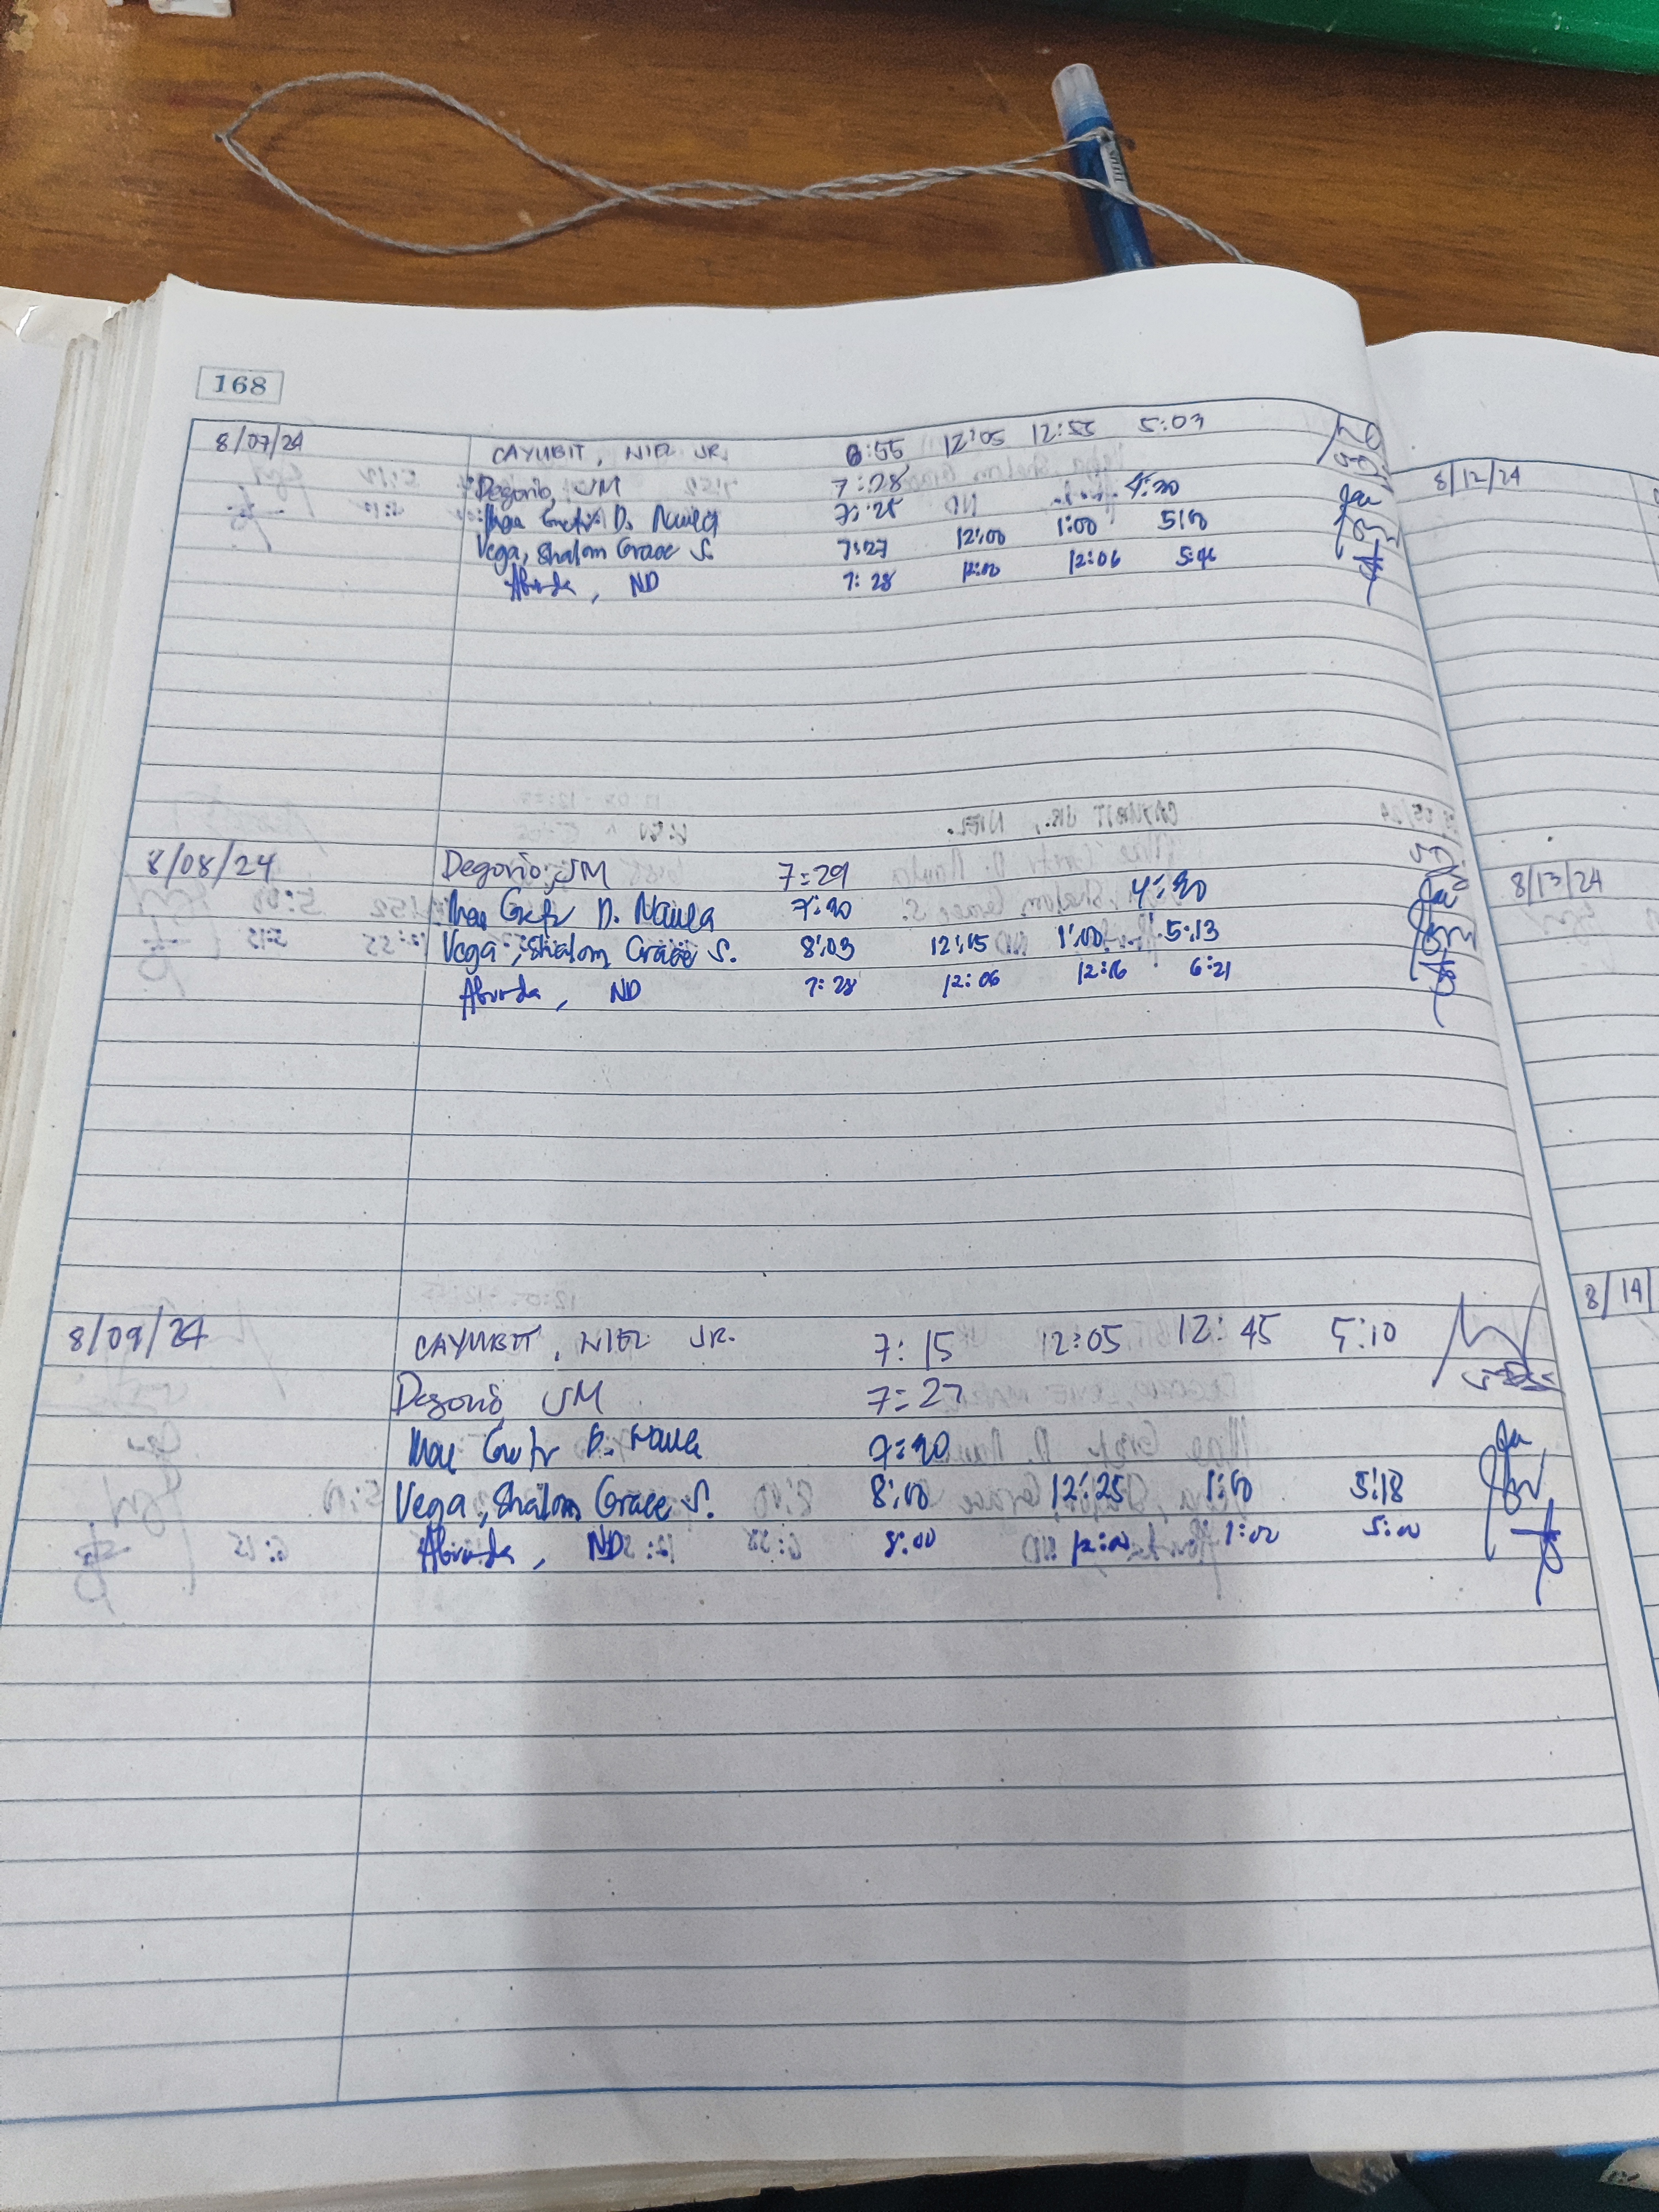 168
8/07/24 CAYUBIT, NIEL JR. 6:55 12:05 12:55 5:03
Degorio, JM 7:28
Mae Gretz D. Naula 7:25 4:30
Vega, Shalom Grace S. 7:27 12:00 1:00 5:00
Abunda, ND 7:28 12:00 12:06
8/08/24 Degorio, JM 7:29
Mae Gretz D. Naula 7:30 4:30
Vega, Shalom Grace S. 8:03 12:15 1:00 5:13
Abunda, ND 7:28 12:06 12:16 6:21
8/09/24 CAYUBIT, NIEL JR. 7:15 12:05 12:45 5:10
Degorio, JM 7:27
Mae Gretz D. Naula 7:30
Vega, Shalom Grace S. 8:00 12:25 1:00 5:18
Abunda, ND 8:00 12:00 1:00 5:00
8/12/24
8/13/24
8/14/